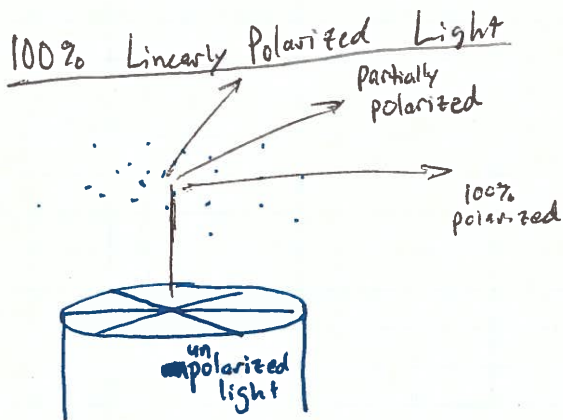 100% Linearly Polarized Light
partially
polarized
100%
polarized
un
polarized
light